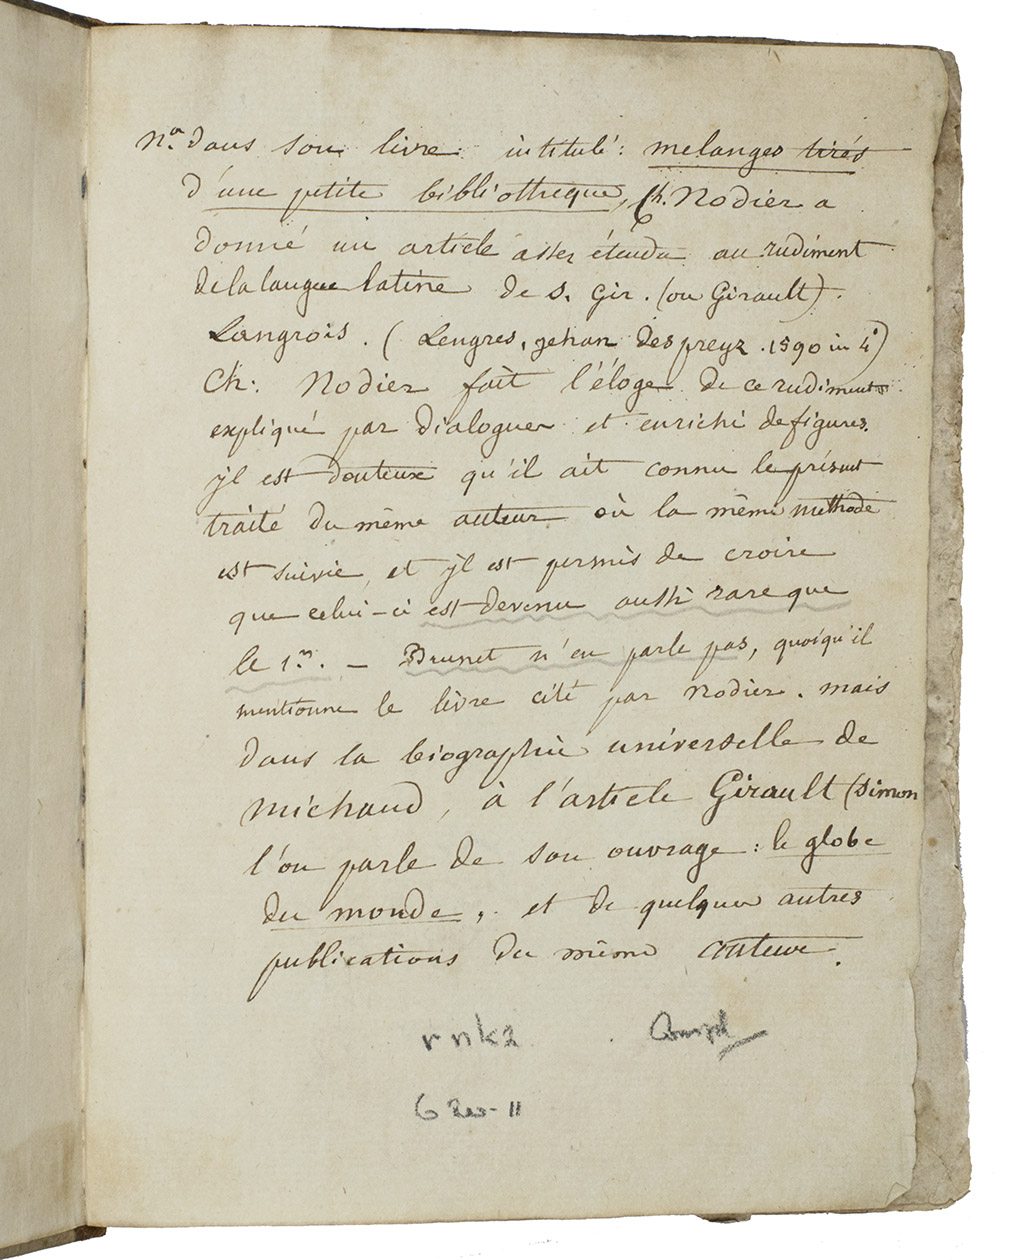 na. dans son livre intitulé: melanges tirés
d'une petite bibliotheque, Ch. Nodier a
donné un article assez étendu au rudiment
de la langue latine de S. Gir. (ou Girault).
Langrois. (Lengres, jehan des preyz. 1590 in 4°)
Ch: Nodier fait l'éloge de ce rudiment
expliqué par dialogues et enrichi de figures.
yl est douteux qu'il ait connu le présent
traité du même auteur où la même méthode
est suivie, et yl est permis de croire
que celui-ci est devenu aussi rare que
le 1er. - Brunet n'en parle pas, quoiqu'il
mentionne le livre cité par nodier. mais
dans la biographie universelle de
michaud, à l'article Girault (Simon
l'on parle de son ouvrage: le globe
du monde, et de quelques autres
publications du même auteur.
r nk2